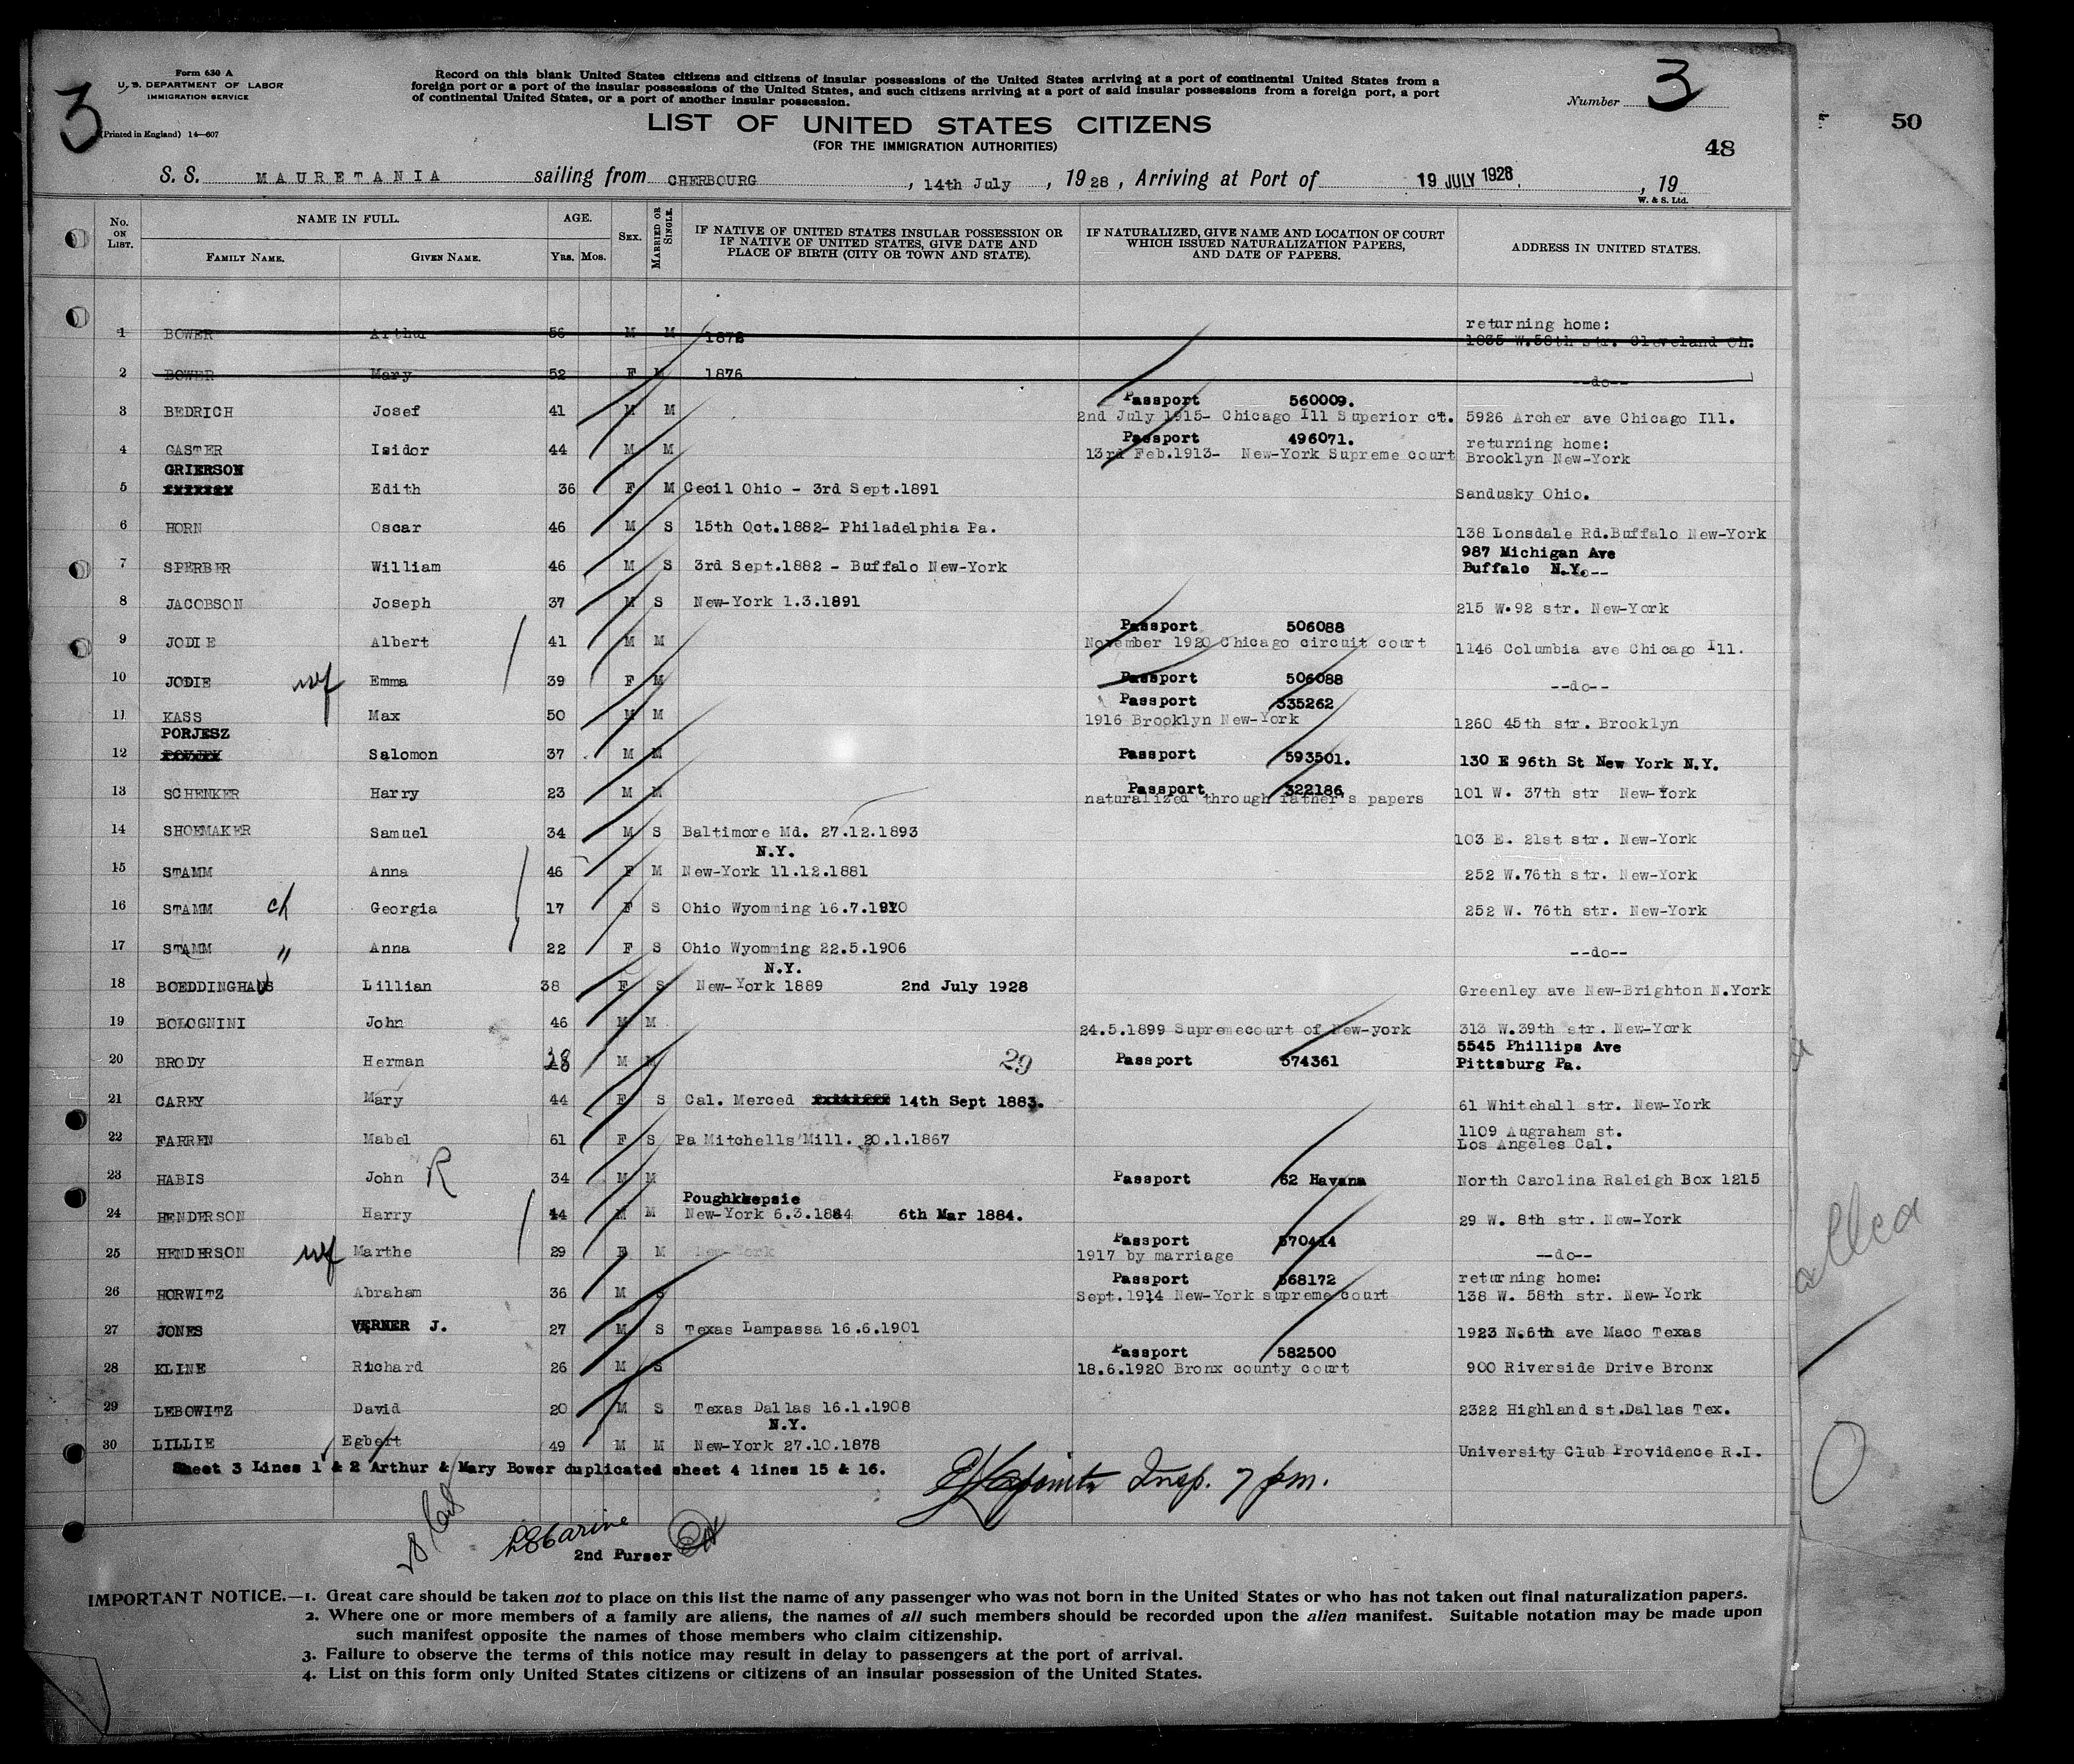 Form 630 A
U. S. DEPARTMENT OF LABOR
IMMIGRATION SERVICE
(Printed in England) 14—607
3
Record on this blank United States citizens and citizens of insular possessions of the United States arriving at a port of continental United States from a
foreign port or a port of the insular possessions of the United States, and such citizens arriving at a port of said insular possessions from a foreign port, a port
of continental United States, or a port of another insular possession.
Number 3
LIST OF UNITED STATES CITIZENS
(FOR THE IMMIGRATION AUTHORITIES)
48
50
S. S. MAURETANIA sailing from CHERBOURG, 14th July, 1928, Arriving at Port of 19 JULY 1928, 19
W. & S. Ltd.
No. ON LIST. NAME IN FULL. FAMILY NAME. GIVEN NAME. AGE. Yrs. Mos. SEX. MARRIED OR SINGLE. IF NATIVE OF UNITED STATES INSULAR POSSESSION OR IF NATIVE OF UNITED STATES, GIVE DATE AND PLACE OF BIRTH (CITY OR TOWN AND STATE). IF NATURALIZED, GIVE NAME AND LOCATION OF COURT WHICH ISSUED NATURALIZATION PAPERS, AND DATE OF PAPERS. ADDRESS IN UNITED STATES.
returning home:
1 BOWER Arthur 56 M M 1872 1035 W.58th str. Cleveland Oh.
2 BOWER Mary 52 F M 1876 --do--
Passport 560009.
3 BEDRICH Josef 41 M M 2nd July 1915- Chicago Ill Superior ct. 5926 Archer ave Chicago Ill.
Passport 496071. returning home:
4 GASTER Isidor 44 M M 13rd Feb.1913- New-York Supreme court Brooklyn New-York
GRIERSON
5 Edith 36 F M Cecil Ohio - 3rd Sept.1891 Sandusky Ohio.
6 HORN Oscar 46 M S 15th Oct.1882- Philadelphia Pa. 138 Lonsdale Rd.Buffalo New-York
987 Michigan Ave
7 SPERBER William 46 M S 3rd Sept.1882 - Buffalo New-York Buffalo N.Y.
8 JACOBSON Joseph 37 M S New-York 1.3.1891 215 W.92 str. New-York
Passport 506088
9 JODIE Albert 41 M M November 1920 Chicago circuit court 1146 Columbia ave Chicago Ill.
10 JODIE wf Emma 39 F M Passport 506088 --do--
Passport 335262
11 KASS Max 50 M M 1916 Brooklyn New-York 1260 45th str. Brooklyn
PORJESZ
12 Salomon 37 M M Passport 593501. 130 E 96th St New York N.Y.
Passport 322186
13 SCHENKER Harry 23 M M naturalized through father's papers 101 W. 37th str New-York
14 SHOEMAKER Samuel 34 M S Baltimore Md. 27.12.1893 103 E. 21st str. New-York
N.Y.
15 STAMM Anna 46 F M New-York 11.12.1881 252 W.76th str. New-York
16 STAMM ch Georgia 17 F S Ohio Wyomming 16.7.1910 252 W. 76th str. New-York
17 STAMM " Anna 22 F S Ohio Wyomming 22.5.1906 --do--
N.Y.
18 BOEDDINGHAUS Lillian 38 F S New-York 1889 2nd July 1928 Greenley ave New-Brighton N.York
19 BOLOGNINI John 46 M M 24.5.1899 Supremecourt of New-york 313 W.39th str. New-York
5545 Phillips Ave
20 BRODY Herman 28 M M 29 Passport 574361 Pittsburg Pa.
21 CAREY Mary 44 F S Cal. Merced 14th Sept 1883. 61 Whitehall str. New-York
1109 Augraham st.
22 FARREN Mabel 61 F S Pa Mitchells'Mill. 20.1.1867 Los Angeles Cal.
23 HABIS John R 34 M M Passport 62 Havana North Carolina Raleigh Box 1215
Poughkeepsie
24 HENDERSON Harry 44 M M New-York 6.3.1884 6th Mar 1884. 29 W. 8th str. New-York
Passport 570414
25 HENDERSON wf Marthe 29 F M New-York 1917 by marriage --do--
Passport 568172 returning home:
26 HORWITZ Abraham 36 M S Sept.1914 New-York supreme court 138 W. 58th str. New-York
27 JONES VERNER J. 27 M S Texas Lampassa 16.6.1901 1923 N.6th ave Maco Texas
Passport 582500
28 KLINE Richard 26 M S 18.6.1920 Bronx county court 900 Riverside Drive Bronx
29 LEBOWITZ David 20 M S Texas Dallas 16.1.1908 2322 Highland st.Dallas Tex.
N.Y.
30 LILLIE Egbert 49 M M New-York 27.10.1878 University Club Providence R.I.
Sheet 3 Lines 1 & 2 Arthur & Mary Bower duplicated sheet 4 lines 15 & 16.
Insp. 7 pm.
2nd Purser
IMPORTANT NOTICE.—1. Great care should be taken not to place on this list the name of any passenger who was not born in the United States or who has not taken out final naturalization papers.
2. Where one or more members of a family are aliens, the names of all such members should be recorded upon the alien manifest. Suitable notation may be made upon
such manifest opposite the names of those members who claim citizenship.
3. Failure to observe the terms of this notice may result in delay to passengers at the port of arrival.
4. List on this form only United States citizens or citizens of an insular possession of the United States.